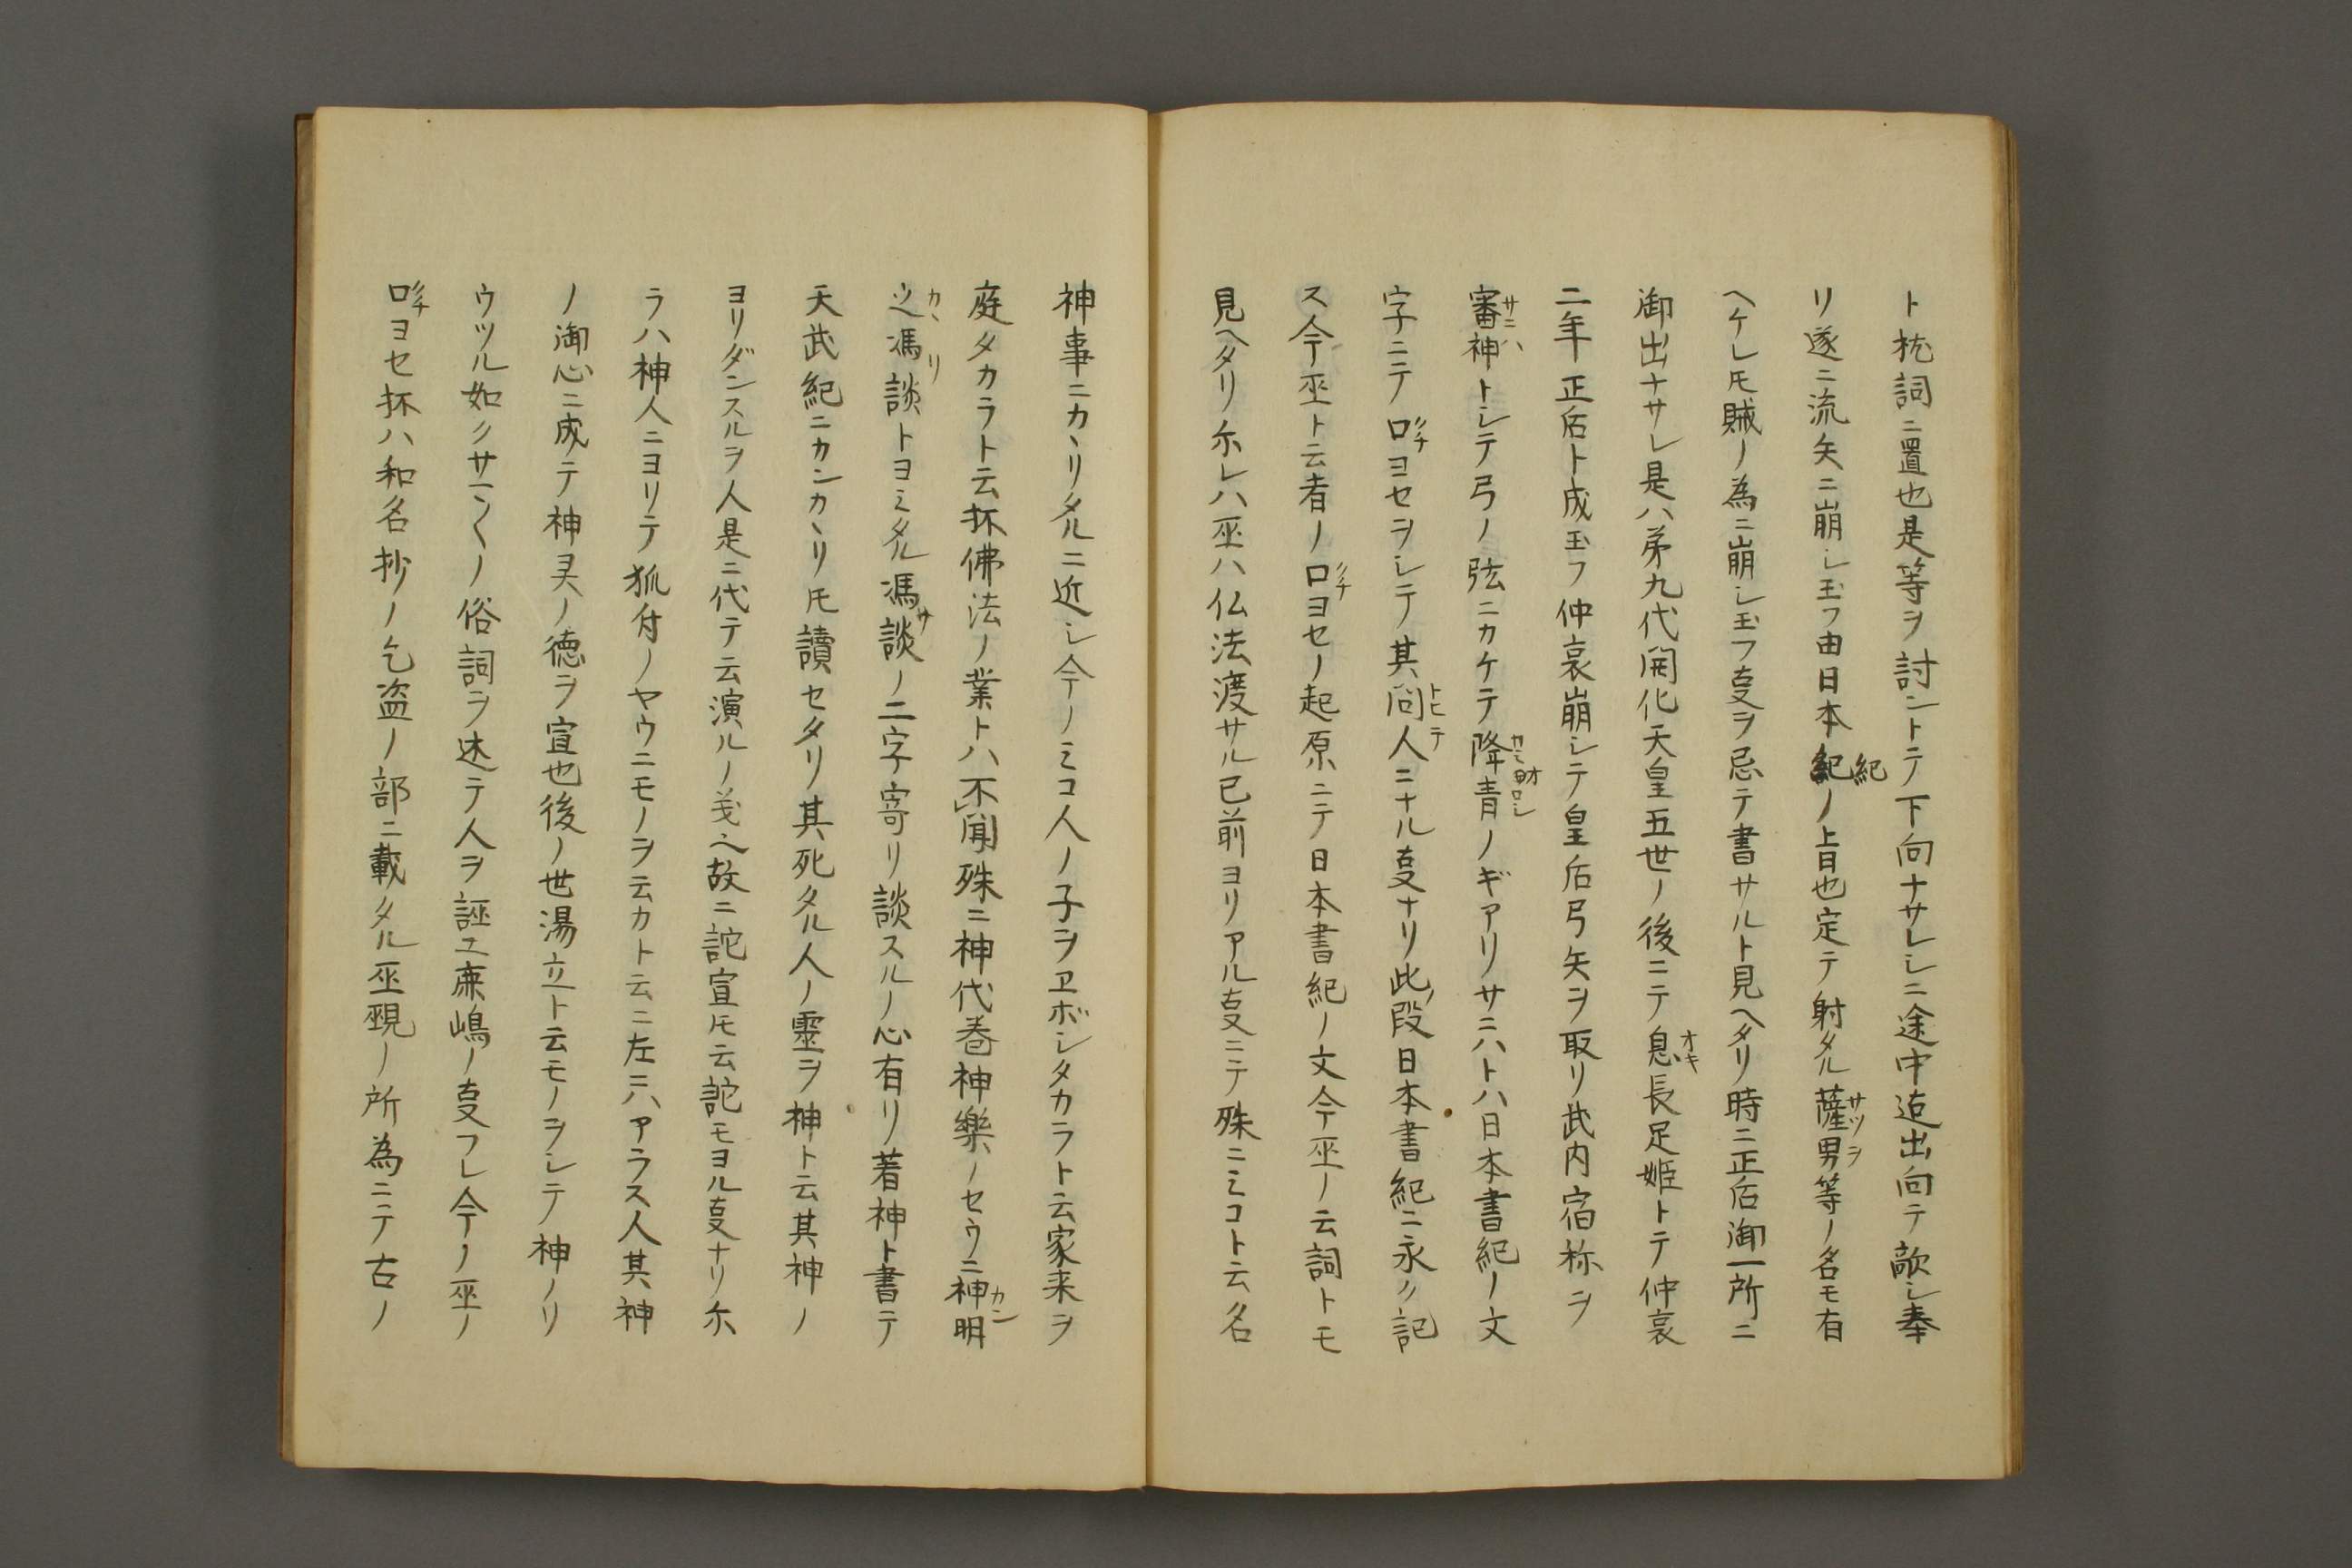 ト枕詞ニ置也是等ヲ討ントテ下向ナサレシニ途中迄出向テ敵シ奉
リ遂ニ流矢ニ崩シ玉フ由日本紀ノ旨也定テ射タル薩男等ノ名モ有
ヘケレ𪜈賊ノ為ニ崩シ玉フ叓ヲ忌テ書サルト見ヘタリ時ニ正后御一所ニ
御出ナサレ是ハ第九代開化天皇五世ノ後ニテ息長足姫トテ仲哀
二年正后ト成玉フ仲哀崩シテ皇后弓矢ヲ取リ武内宿祢ヲ
審神トシテ弓ノ弦ニカケテ降青ノギアリサニハトハ日本書紀ノ文
字ニテ口ヨセヲシテ其問人ニナル叓ナリ此段日本書紀ニ永ク記
ス今巫ト云者ノ口ヨセノ起原ニテ日本書紀ノ文今巫ノ云詞トモ
見ヘタリ尓レハ巫ハ仏法渡サル已前ヨリアル叓ニテ殊ニミコト云名
神事ニカヽリタルニ近シ今ノミコ人ノ子ヲヱボシタカラト云家来ヲ
庭タカラト云抔佛法ノ業トハ不聞殊ニ神代巻神樂ノセウニ神明
之馮談トヨミタル馮談ノ二字寄リ談スルノ心有リ着神ト書テ
天武紀ニカンカヽリ𪜈讀セタリ其死タル人ノ靈ヲ神ト云其神ノ
ヨリダンスルヲ人是ニ代テ云演ルノ義ヘ故ニ詫宣𪜈云詫モヨル叓ナリ尓
ラハ神人ニヨリテ狐付ノヤウニモノヲ云カト云ニ左ニハアラス人其神
ノ御心ニ成テ神灵ノ徳ヲ宣也後ノ世湯立ト云モノヲシテ神ノリ
ウツル如クサマ〱ノ俗詞ヲ述テ人ヲ誣ユ鹿嶋ノ叓フレ今ノ巫ノ
口ヨセ抔ハ和名抄ノ乞盗ノ部ニ載タル巫覡ノ所為ニテ古ノ